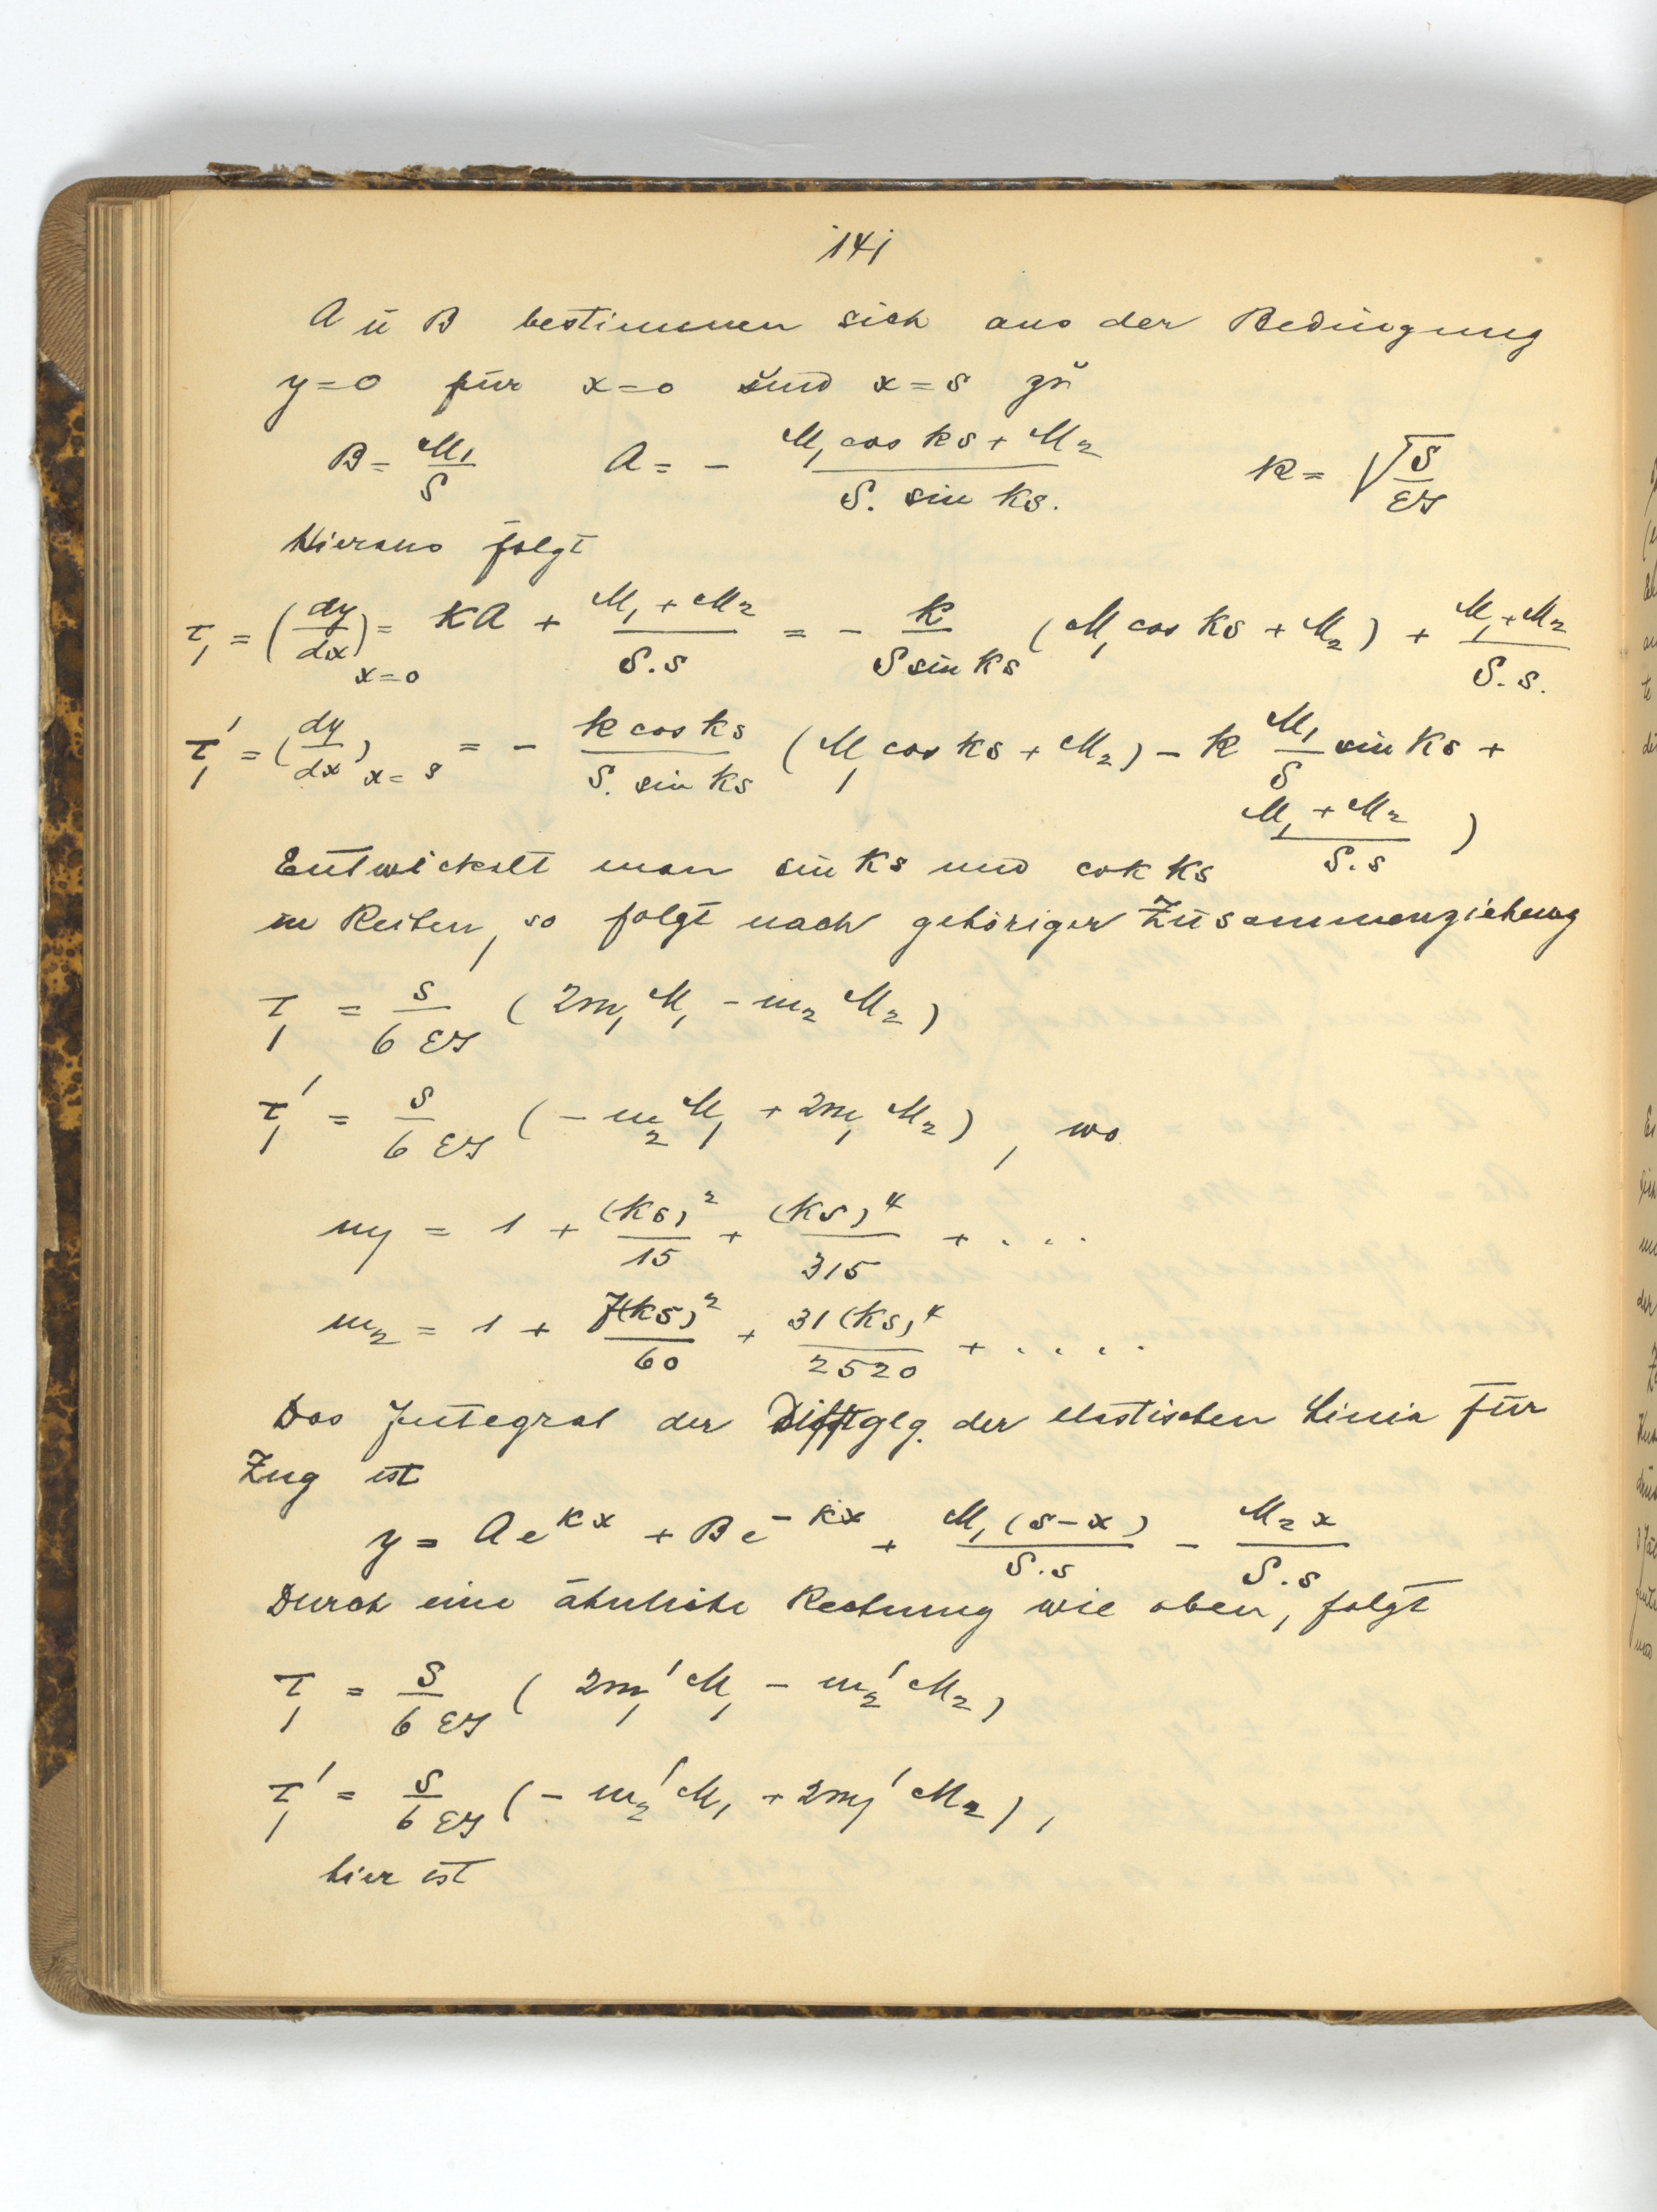 141
A ŭ B bestimmen sich aus der Bedingung
y=0 für x=0 ŭnd x=s zŭ
B = M₁/S A = - (M₁ cos ks + M₂)/(S. sin ks.) k = √(S/EJ)
Hieraus folgt
τ₁ = (dy/dx)x=0 = kA + (M₁+M₂)/(S.s) = - k/(S sin ks) (M₁ cos ks + M₂) + (M₁+M₂)/(S.s.)
τ₁' = (dy/dx)x=s = - (k cos ks)/(S. sin ks) (M₁ cos ks + M₂) - k M₁/S sin ks +
(M₁+M₂)/(S.s) )
Entwickelt man sin ks und cok ks
in Reihen, so folgt nach gehöriger Zusammenziehung
τ₁ = s/(6 EJ) (2m₁M₁ - m₂M₂)
τ₁' = s/(6 EJ) (- m₂M₁ + 2m₁M₂), wo
m₁ = 1 + (ks)²/15 + (ks)⁴/315 + . . .
m₂ = 1 + 7(ks)²/60 + 31(ks)⁴/2520 + . . . .
Das Integral der Diffglg. der elastischen Linie für
Zug ist
y = Ae^kx + Be^-kx + M₁(s-x)/(S.s) - M₂x/(S.s)
Durch eine ähnliche Rechnung wie oben, folgt
τ₁ = s/(6 EJ) (2m₁'M₁ - m₂'M₂)
τ₁' = s/(6 EJ) (- m₂'M₁ + 2m₁'M₂),
hier ist